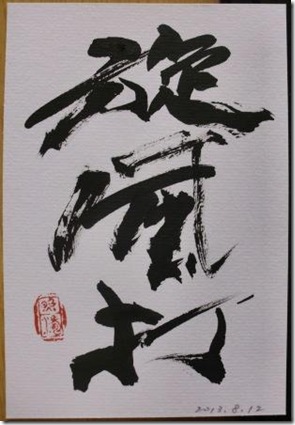 旋
風
打
2013.8.12